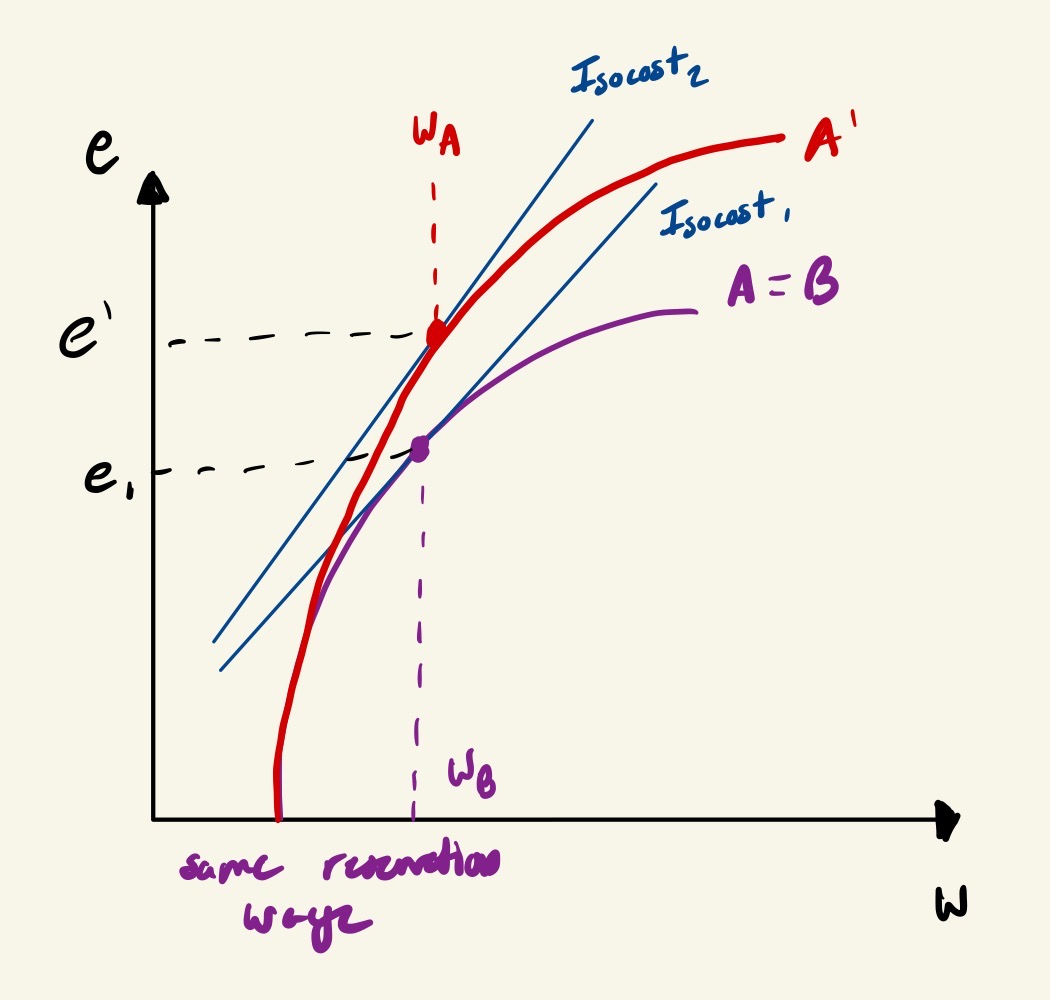 Isocost₂
w_A
A'
e
Isocost₁
A = B
e'
e₁
w_B
same reservation
wage
w